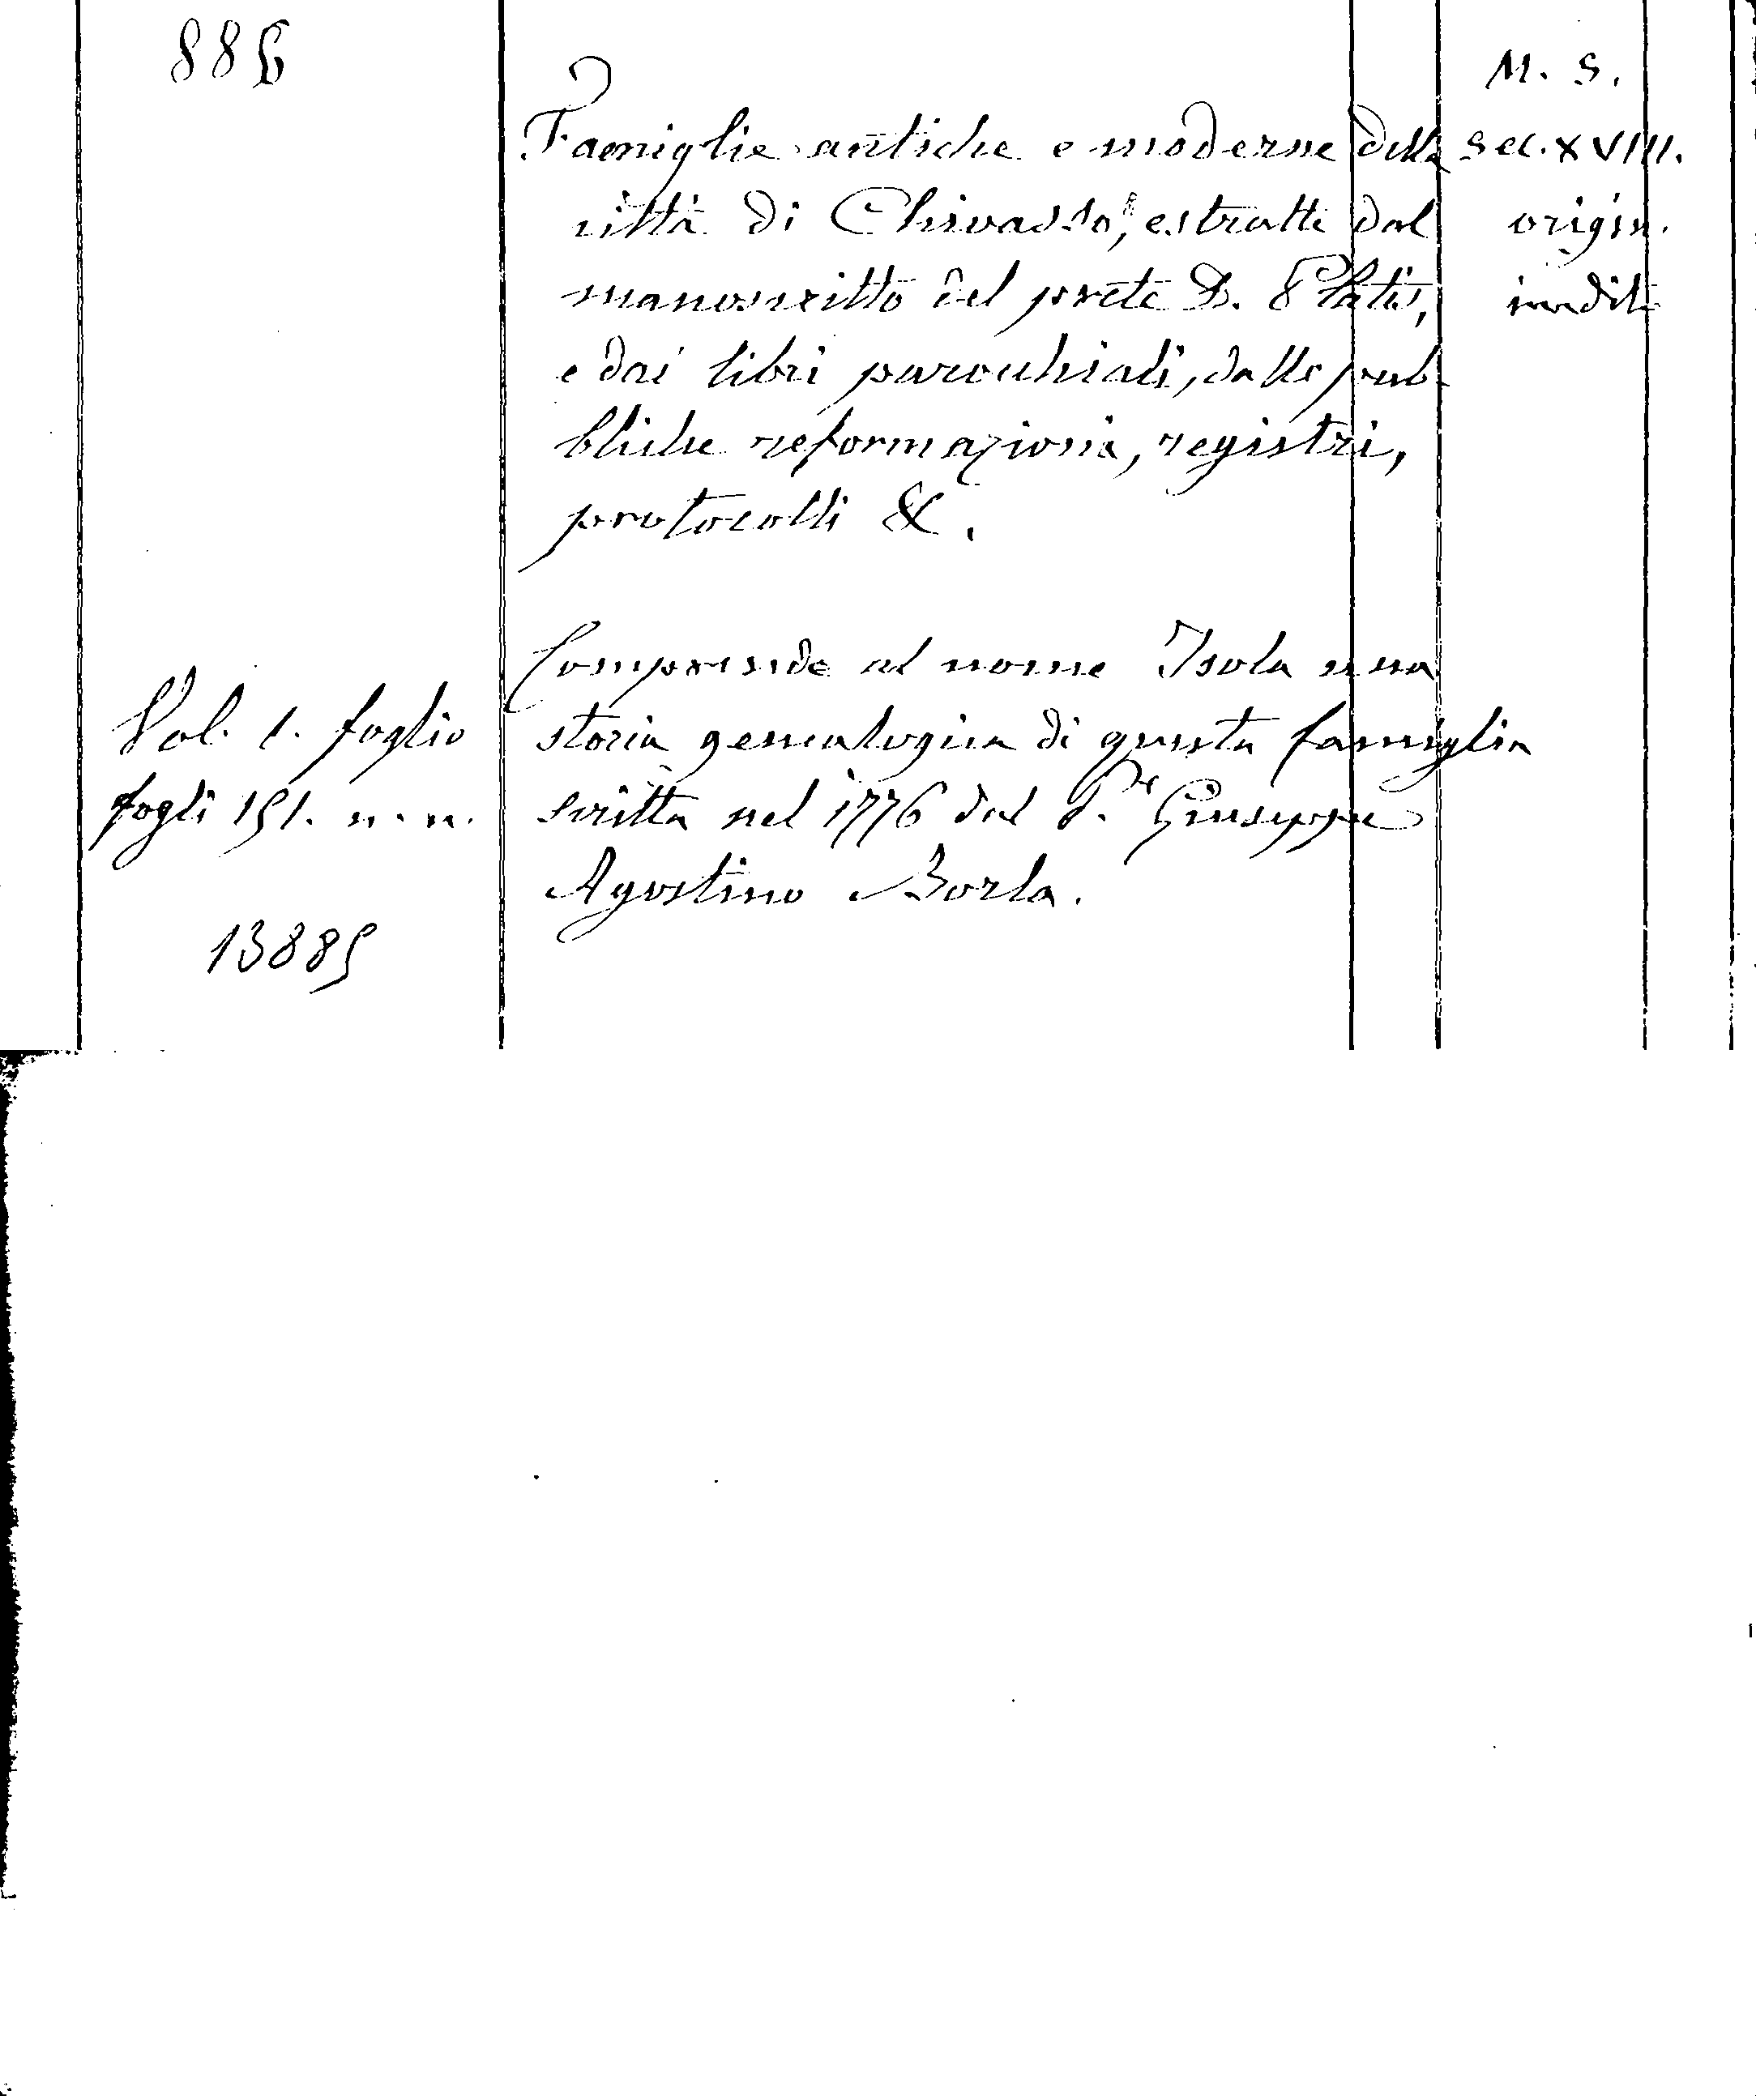 886
M. S.
Famiglie antiche e moderne della
sec. XVIII.
città di Chivasso, estratte dal
origin.
manoscritto del prete D.
inedit
e dai libri parochiali, dalle pub-
bliche reformazioni, registri,
protocolli &.
Comprende al nome Isola una
Vol. 1. foglio
storia genealogica di questa famiglia
fogli 151. n. n.
scritta nel 1776 dal P.e Giuseppe
Agostino Borla.
13885